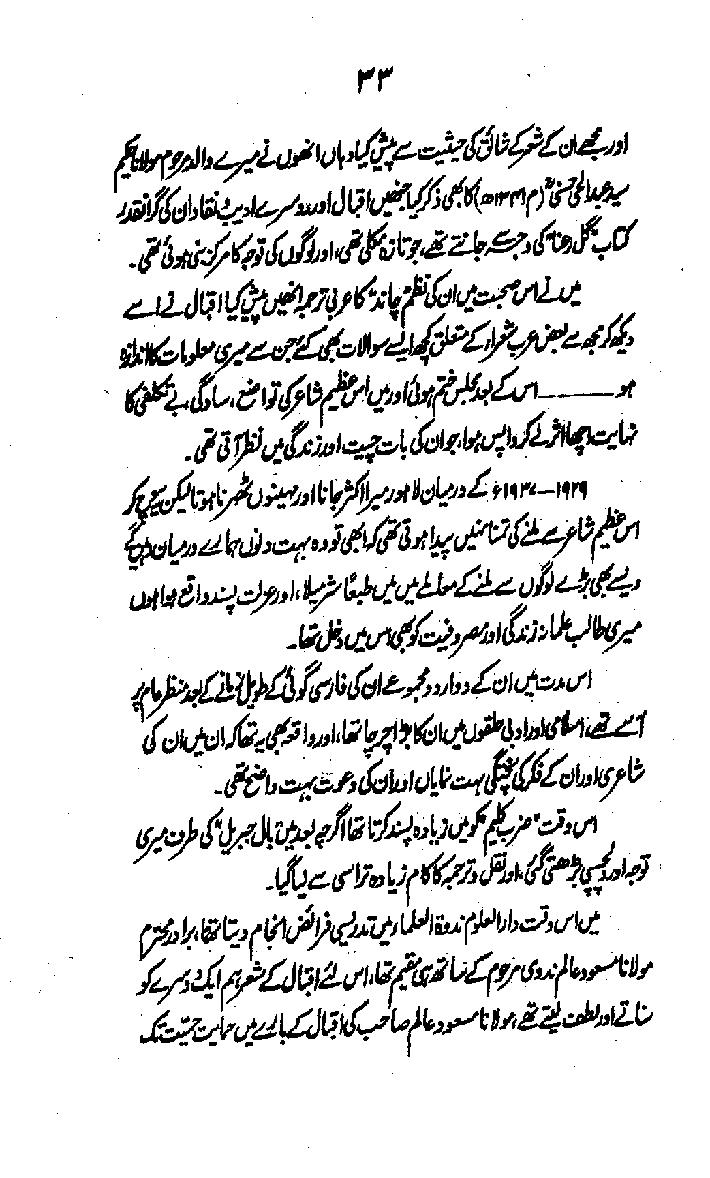 ۳۳
اور مجھے ان کے شعر کے شائق کی حیثیت سے پیش کیا وہاں انھوں نے میرے والد مرحوم مولانا حکیم
سید عبدالحی حسنیؒ (م ۱۳۴۱ھ) کا بھی ذکر کیا جنھیں اقبال اور دوسرے ادیب و نقاد ان کی گرانقدر
کتاب "گل رعنا" کی وجہ سے جانتے تھے، جو تازہ نکلی تھی، اور لوگوں کی توجہ کا مرکز بنی ہوئی تھی۔
میں نے اس صحبت میں ان کی نظم "چاند" کا عربی ترجمہ انھیں پیش کیا، اقبال نے اسے
دیکھ کر مجھ سے بعض عرب شعراء کے متعلق کچھ ایسے سوالات بھی کئے جن سے میری معلومات کا اندازہ
ہو ـــــــ اس کے بعد مجلس ختم ہوئی اور میں اس عظیم شاعر کی تواضع، سادگی، بے تکلفی کا
نہایت اچھا اثر لے کر واپس ہوا، جو ان کی بات چیت اور زندگی میں نظر آتی تھی۔
۱۹۲۹–۱۹۳۷ء کے درمیان لاہور میرا اکثر جانا اور مہینوں ٹھہرنا ہوتا لیکن یہ سوچ کر
اس عظیم شاعر سے ملنے کی تمنا نہیں پیدا ہوتی تھی کہ ابھی تو وہ بہت دنوں ہمارے درمیان رہیں گے
ویسے بھی بڑے لوگوں سے ملنے کے معاملے میں میں طبعًا شرمیلا، اور عزلت پسند واقع ہوا ہوں
میری طالب علمانہ زندگی اور مصروفیت کو بھی اس میں دخل تھا۔
اس مدت میں ان کے دو اردو مجموعے ان کی فارسی گوئی کے طویل زمانے کے بعد منظر عام پر
آئے تھے، اسلامی اور ادبی حلقوں میں ان کا بڑا چرچا تھا، اور واقعہ بھی یہ تھا کہ ان میں ان کی
شاعری اور ان کے فکر کی پختگی بہت نمایاں اور ان کی دعوت بہت واضح تھی۔
اس وقت "ضرب کلیم" کو میں زیادہ پسند کرتا تھا اگرچہ بعد میں "بال جبریل" کی طرف میری
توجہ اور دلچسپی بڑھتی گئی، اور نقل و ترجمہ کا کام زیادہ تر اسی سے لیا گیا۔
میں اس وقت دارالعلوم ندوۃ العلماء میں تدریسی فرائض انجام دیتا تھا، برادر محترم
مولانا مسعود عالم ندوی مرحوم کے ساتھ ہی مقیم تھا، اس لئے اقبال کے شعر ہم ایک دوسرے کو
سناتے اور لطف لیتے تھے، مولانا مسعود عالم صاحب کی اقبال کے بارے میں حمایت حمیّت تک